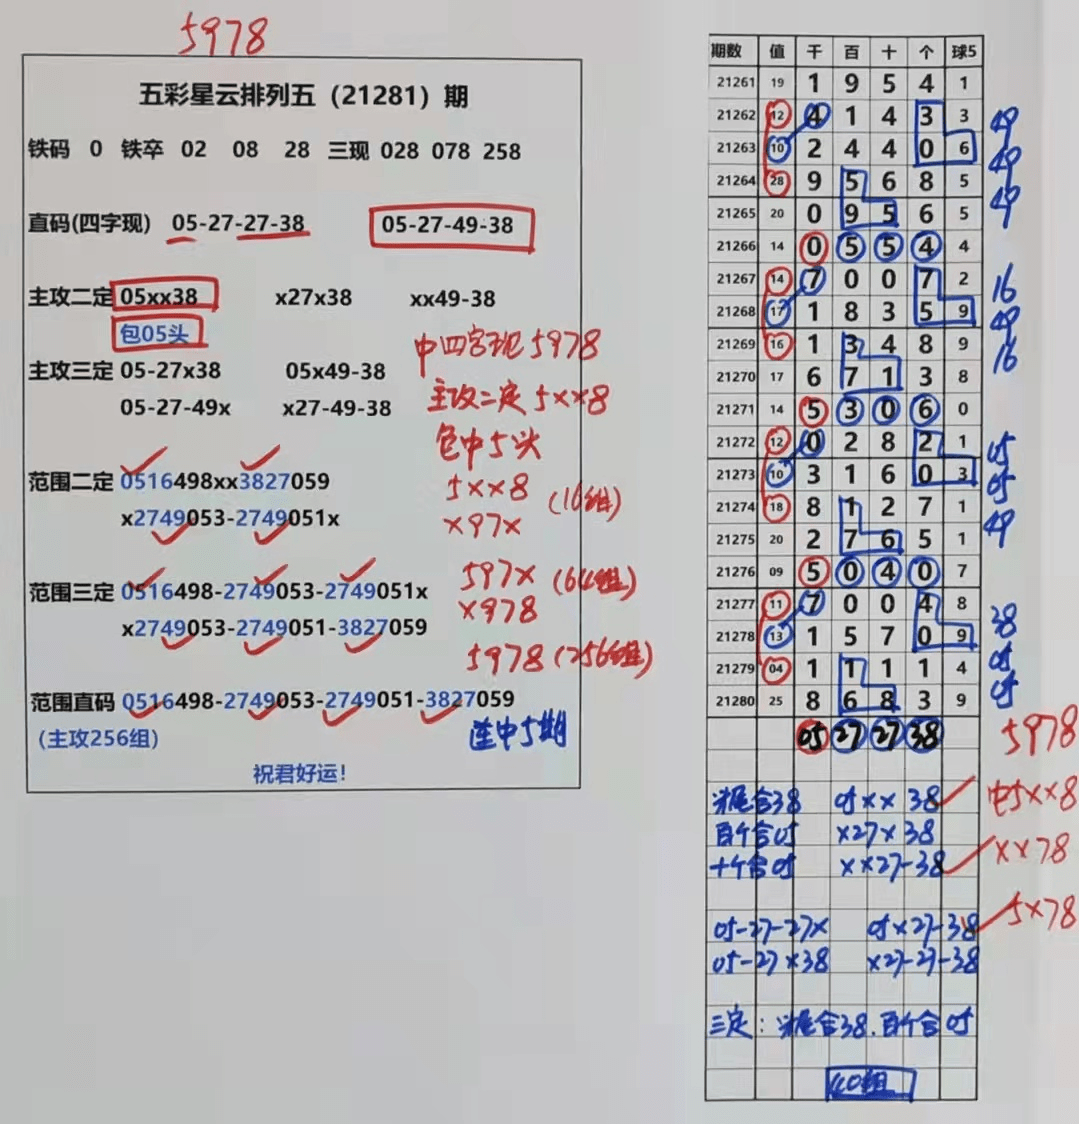 5978
五彩星云排列五（21281）期
铁码 0 铁卒 02 08 28 三现 028 078 258
直码(四字现) 05-27-27-38 05-27-49-38
主攻二定 05xx38 x27x38 xx49-38
包05头
中四字现5978
主攻三定 05-27x38 05x49-38
主攻二定5xx8
05-27-49x x27-49-38
包中5头
范围二定 0516498xx3827059
5xx8 (16组)
x2749053-2749051x
x97x
范围三定 0516498-2749053-2749051x
597x (64组)
x2749053-2749051-3827059
x978
5978 (256组)
范围直码 0516498-2749053-2749051-3827059
(主攻256组) 连中5期
祝君好运！
期数 值 千 百 十 个 球5
21261 19 1 9 5 4 1
21262 12 4 1 4 3 3 49
21263 10 2 4 4 0 6 49
21264 28 9 5 6 8 5 49
21265 20 0 9 5 6 5
21266 14 0 5 5 4 4
21267 14 7 0 0 7 2 16
21268 17 1 8 3 5 9 49
21269 16 1 3 4 8 9 16
21270 17 6 7 1 3 8
21271 14 5 3 0 6 0
21272 12 0 2 8 2 1 05
21273 10 3 1 6 0 3 05
21274 18 8 1 2 7 1 49
21275 20 2 7 6 5 1
21276 09 5 0 4 0 7
21277 11 7 0 0 4 8 38
21278 13 1 5 7 0 9 05
21279 04 1 1 1 1 4 05
21280 25 8 6 8 3 9
05 27 27 38 5978
尾合38 05xx 38 中5xx8
百个合05 x27x 38
十个合05 xx27-38 xx78
05-27-27x 05x27-38 5x78
05-27x38 x27-27-38
三定: 尾合38.百个合05
40组